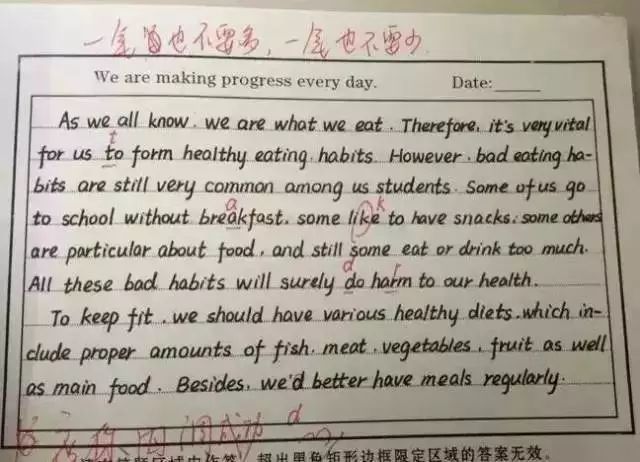 一尾也不要多，一尾也不要少
We are making progress every day. Date:
As we all know, we are what we eat. Therefore, it's very vital
t
for us to form healthy eating habits. However, bad eating ha-
bits are still very common among us students. Some of us go
a k
to school without breakfast, some like to have snacks, some others
are particular about food, and still some eat or drink too much.
d r
All these bad habits will surely do harm to our health.
To keep fit, we should have various healthy diets, which in-
clude proper amounts of fish, meat, vegetables, fruit as well
as main food. Besides, we'd better have meals regularly.
d
成功
区域内作答，超出黑色矩形边框限定区域的答案无效。